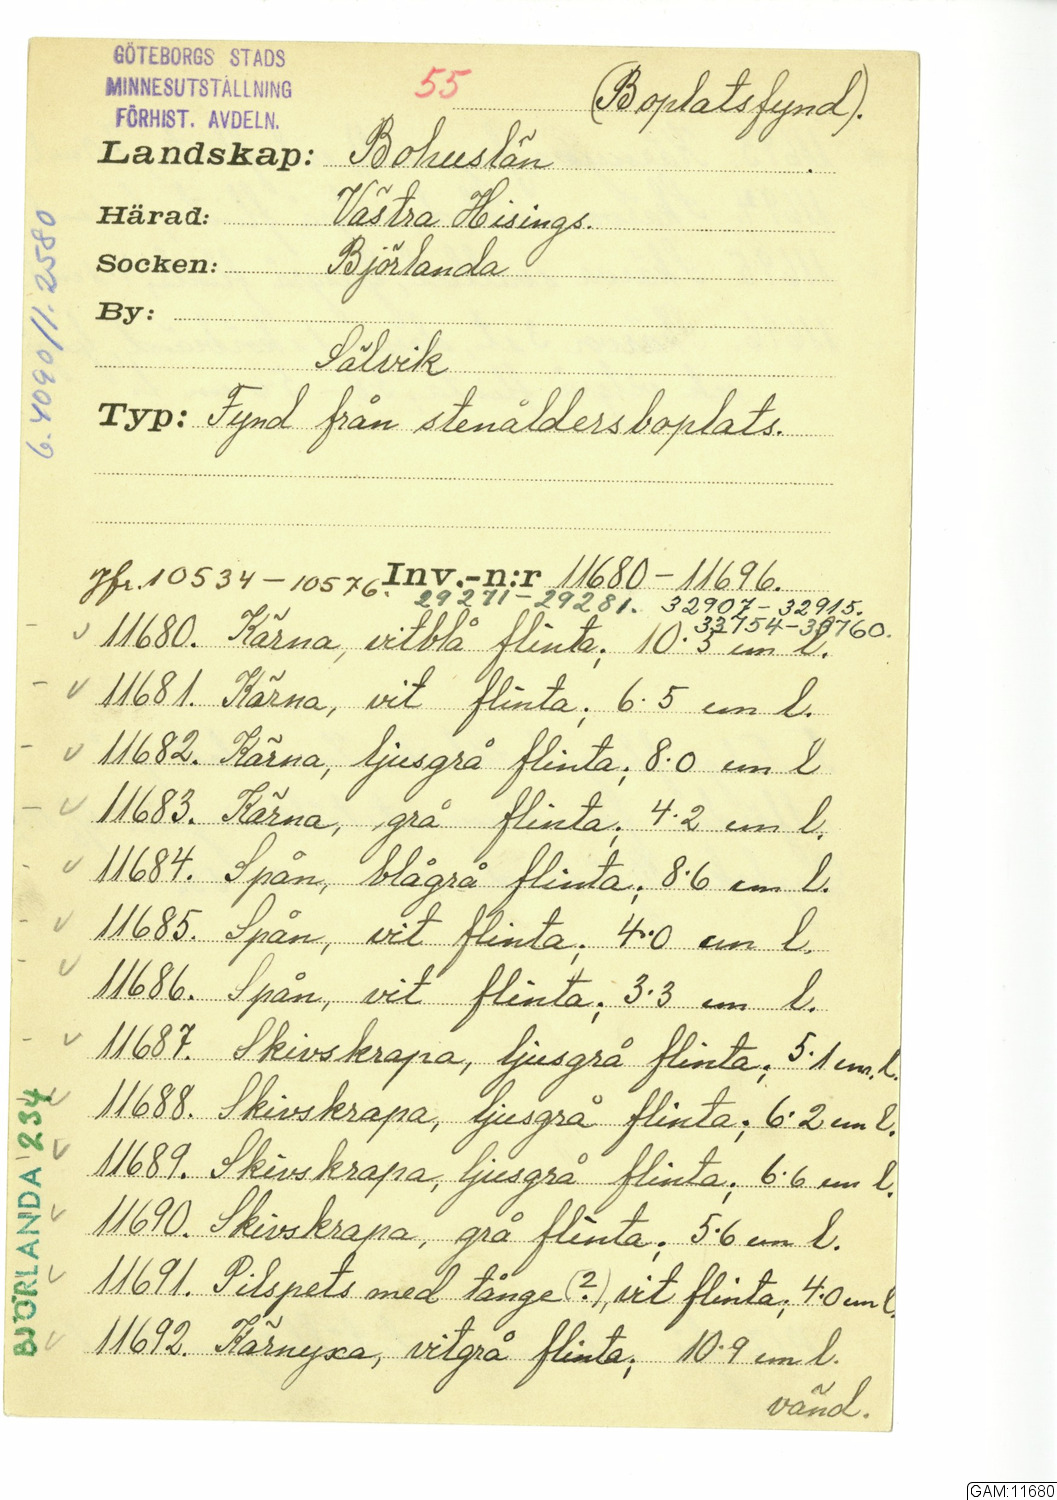 GÖTEBORGS STADS
MINNESUTSTÄLLNING
FÖRHIST. AVDELN.
55
(Boplatsfynd).
Landskap: Bohuslän
Härad: Västra Hisings.
Socken: Björlanda
By:
Sälvik
Typ: Fynd från stenåldersboplats.
Jfr. 10534-10576. Inv.-n:r 11680-11696.
29271-29281. 32907-32915.
33754-33760.
11680. Kärna, vitblå flinta; 10.5 cm l.
11681. Kärna, vit flinta; 6.5 cm l.
11682. Kärna, ljusgrå flinta; 8.0 cm l
11683. Kärna, grå flinta; 4.2 cm l.
11684. Spån, blågrå flinta; 8.6 cm l.
11685. Spån, vit flinta; 4.0 cm l.
11686. Spån, vit flinta; 3.3 cm l.
11687. Skivskrapa, ljusgrå flinta; 5.1 cm. l.
11688. Skivskrapa, ljusgrå flinta; 6.2 cm l.
11689. Skivskrapa, ljusgrå flinta; 6.6 cm l.
11690. Skivskrapa, grå flinta; 5.6 cm l.
11691. Pilspets med tånge (?), vit flinta; 4.0 cm l.
11692. Kärnyxa, vitgrå flinta; 10.9 cm l.
vänd.
6.4090/1:2580
BJÖRLANDA 234
GAM:11680